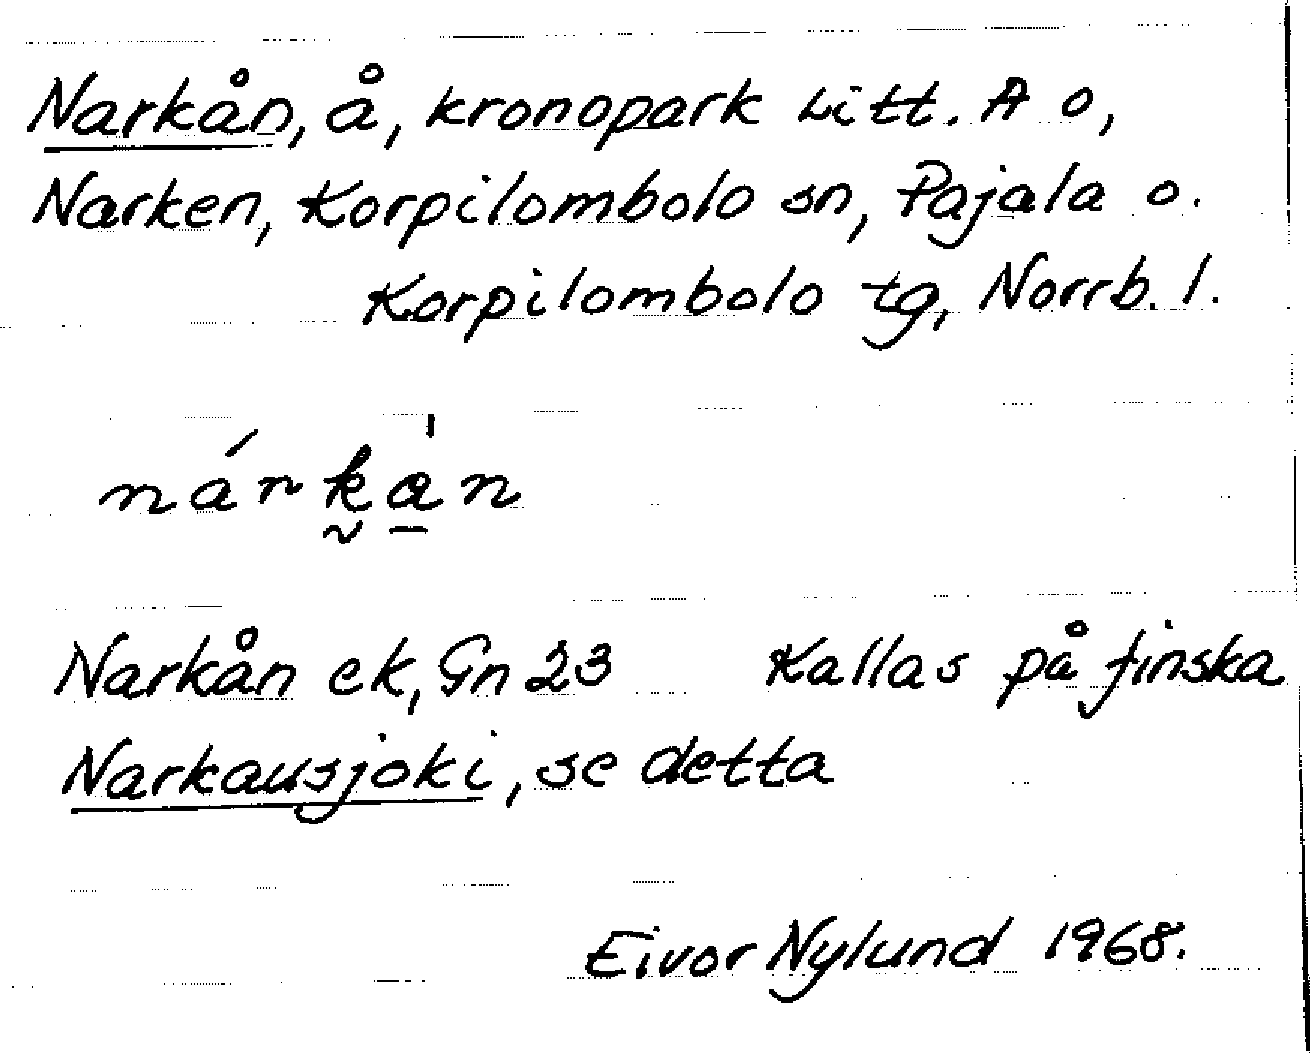 Narkån, å, kronopark Litt. A o,
Narken, Korpilombolo sn, Pajala o.
Korpilombolo tg, Norrb. l.
nárka̠̍n
Narkån ek, Gn 23 Kallas på finska
Narkausjoki, se detta
Eivor Nylund 1968.